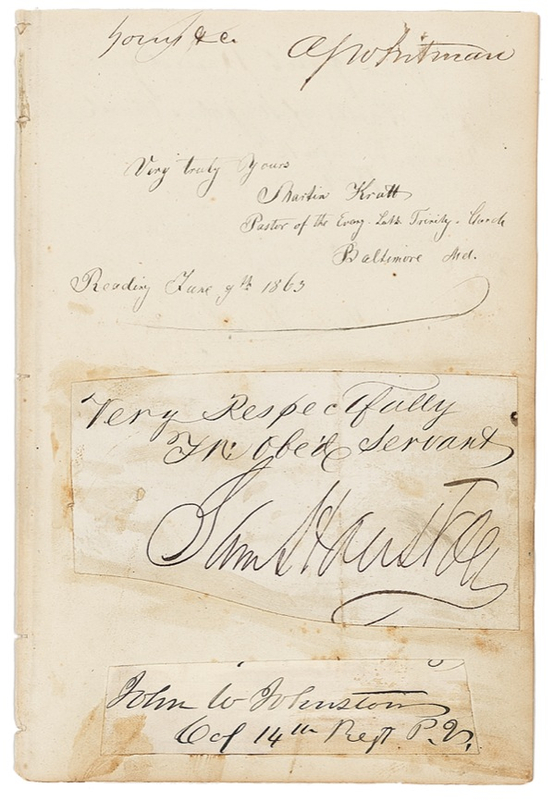 Yours &c. A J Whitman
Very truly yours
Martin Kratt
Pastor of the Evang. Luth. Trinity. Church
Baltimore Md.
Reading June 9th 1863
Very Respectfully
Yr: Obed Servant
Sam Houston
John W Johnston
Col 14th Regt P.V.